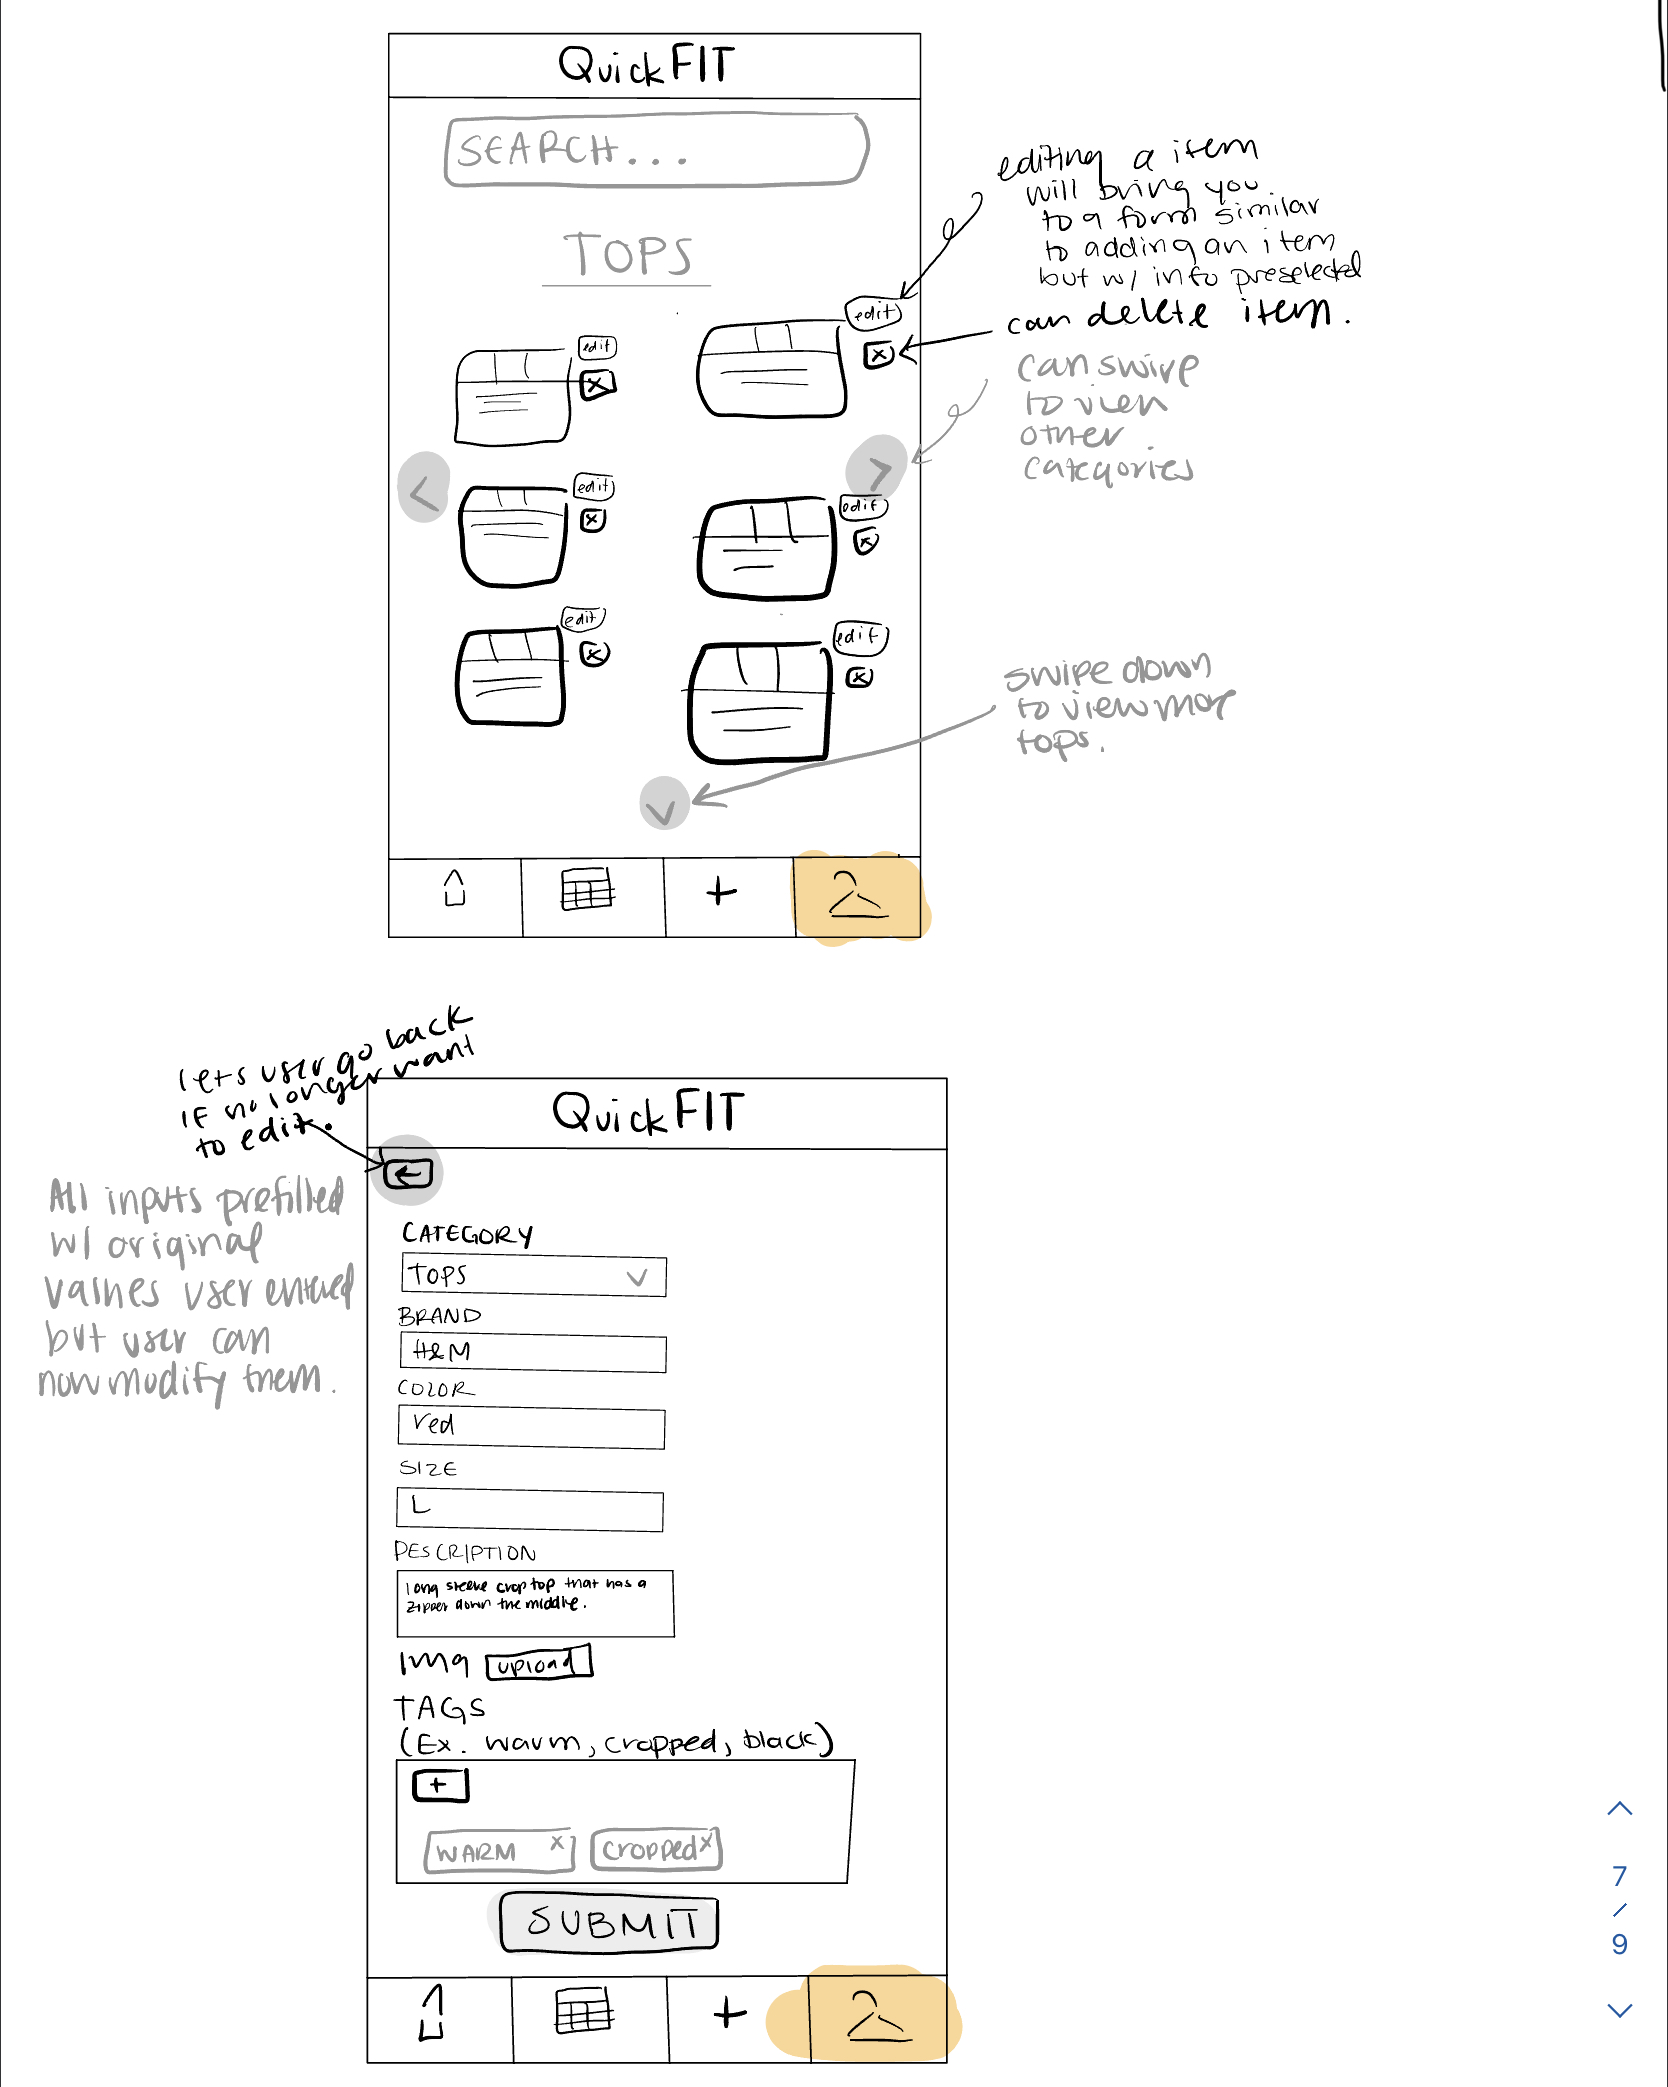 QuickFIT
SEARCH...
TOPS
edit
edit
x
x
edit
edit
x
x
edit
edit
x
x
editing a item
will bring you
to a form similar
to adding an item
but w/ info preselected
can delete item.
can swipe
to view
other
categories
swipe down
to view more
tops.
+
lets user go back
if no longer want
to edit.
All inputs prefilled
w/ original
values user entered
but user can
now modify them.
QuickFIT
CATEGORY
TOPS
BRAND
H&M
COLOR
red
SIZE
L
DESCRIPTION
long sleeve crop top that has a
zipper down the middle.
Img upload
TAGS
(Ex. warm, cropped, black)
+
WARM x cropped x
SUBMIT
+
7
/
9